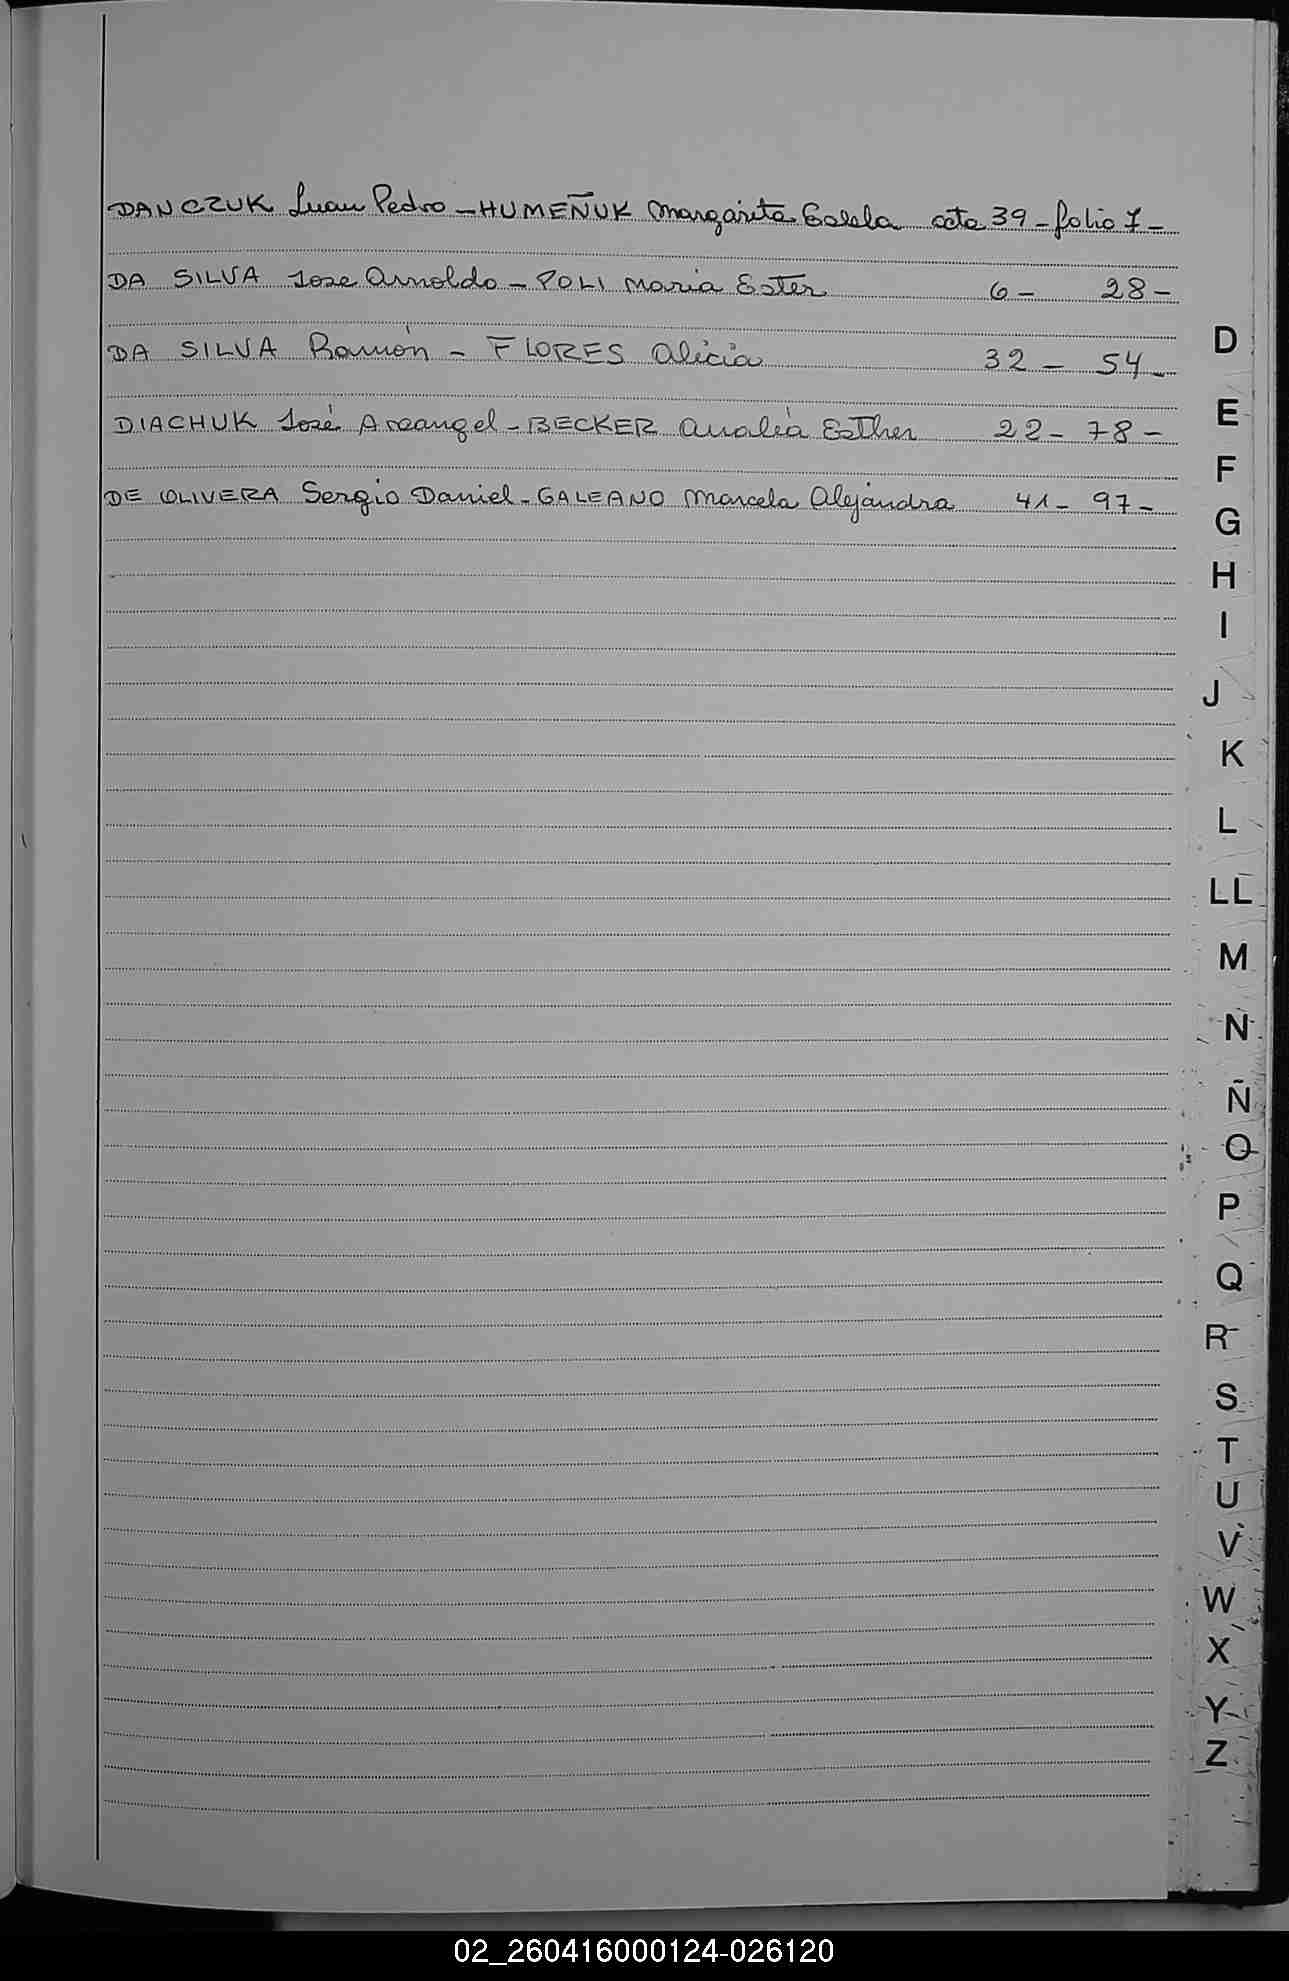 DANCZUK Juan Pedro - HUMEÑUK Margarita Estela acta 39 - folio 7 -
DA SILVA Jose Arnoldo - POLI Maria Ester 6 - 28 -
DA SILVA Ramón - FLORES Alicia 32 - 54 -
DIACHUK José Arcangel - BECKER Analía Esther 22 - 78 -
DE OLIVERA Sergio Daniel - GALEANO Marcela Alejandra 41 - 97 -
D
E
F
G
H
I
J
K
L
LL
M
N
Ñ
O
P
Q
R
S
T
U
V
W
X
Y
Z
02_260416000124-026120